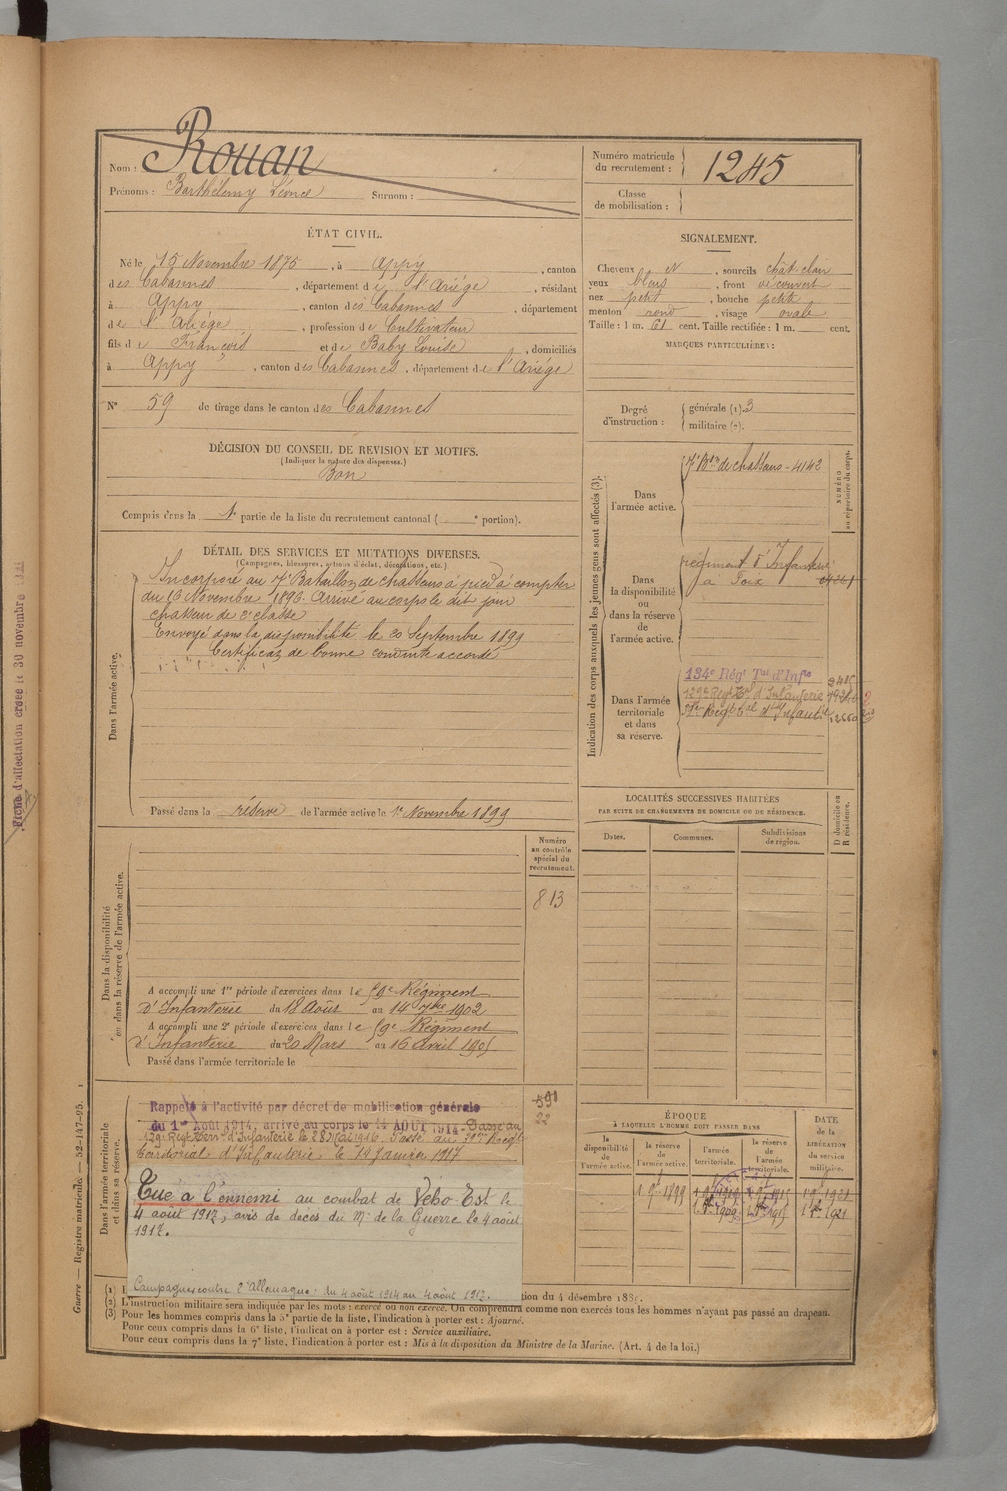 Nom : Rouan
Prénoms : Barthélemy Léonce Surnom :
Numéro matricule du recrutement : 1245
Classe de mobilisation :
ÉTAT CIVIL.
Né le 15 Novembre 1875, à Appy, canton
des Cabannes, département de l'Ariége, résidant
à Appy, canton des Cabannes, département
de l'Ariége, profession de Cultivateur
fils de François et de Baby Louise, domiciliés
à Appy, canton des Cabannes, département de l'Ariége
N° 59 de tirage dans le canton des Cabannes
SIGNALEMENT.
Cheveux et, sourcils chât. clair
yeux bleus, front découvert
nez petit, bouche petite
menton rond, visage ovale
Taille : 1 m. 61 cent. Taille rectifiée : 1 m. cent.
MARQUES PARTICULIÈRES :
Degré d'instruction : générale (1). 3
militaire (2).
DÉCISION DU CONSEIL DE REVISION ET MOTIFS.
(Indiquer la nature des dispenses.)
Bon
Compris dans la 1e partie de la liste du recrutement cantonal ( e portion).
DÉTAIL DES SERVICES ET MUTATIONS DIVERSES.
(Campagnes, blessures, actions d'éclat, décorations, etc.)
Dans l'armée active.
Incorporé au 7e Bataillon de chasseurs à pied à compter
du 16 Novembre 1896. Arrivé au corps le dit jour
chasseur de 2e classe
Envoyé dans la disponibilité le 20 Septembre 1899
Certificat de bonne conduite accordé
Passé dans la réserve de l'armée active le 1er Novembre 1899
Indication des corps auxquels les jeunes gens sont affectés (3).
NUMÉRO au répertoire du corps.
Dans l'armée active.
7e Bon de chasseurs - 4142
Dans la disponibilité ou dans la réserve de l'armée active.
régiment d'Infanterie
à Foix
Dans l'armée territoriale et dans sa réserve.
134e Régt Tal d'Infie
129e Régt Tal d'Infanterie
Régt Tal d'Infanterie
LOCALITÉS SUCCESSIVES HABITÉES
PAR SUITE DE CHANGEMENTS DE DOMICILE OU DE RÉSIDENCE.
Dates. Communes. Subdivisions de région.
D domicile ou R résidence.
Numéro au contrôle spécial du recrutement.
813
Dans la disponibilité ou dans la réserve de l'armée active.
A accompli une 1re période d'exercices dans le 59e Régiment
d'Infanterie du 18 Août au 14 7bre 1902
A accompli une 2e période d'exercices dans le 59e Régiment
d'Infanterie du 20 Mars au 16 Avril 1905
Passé dans l'armée territoriale le
Dans l'armée territoriale et dans sa réserve.
Rappelé à l'activité par décret de mobilisation générale
du 1er Août 1914, arrivé au corps le 14 AOUT 1914. Passé au
129e Régt Terral d'Infanterie le 28 Mai 1916. Passé au Régt
Territorial d'Infanterie le Janvier 1917
Tué à l'ennemi au combat de Vého-Est le
4 août 1917, avis de décès du Mre de la Guerre le 4 août
1917.
Campagnes contre l'Allemagne : du 4 août 1914 au 4 août 1917.
ÉPOQUE
À LAQUELLE L'HOMME DOIT PASSER DANS
la disponibilité de l'armée active. la réserve de l'armée active. l'armée territoriale. la réserve de l'armée territoriale.
DATE de la LIBÉRATION du service militaire.
1 9bre 1899
(1) tion du 4 décembre 188
(2) L'instruction militaire sera indiquée par les mots : exercé ou non exercé. On comprendra comme non exercés tous les hommes n'ayant pas passé au drapeau.
(3) Pour les hommes compris dans la 5e partie de la liste, l'indication à porter est : Ajourné.
Pour ceux compris dans la 6e liste, l'indication à porter est : Service auxiliaire.
Pour ceux compris dans la 7e liste, l'indication à porter est : Mis à la disposition du Ministre de la Marine. (Art. 4 de la loi.)
Guerre — Registre matricule. — 52-147-95.
Fiche d'affectation créée le 30 novembre